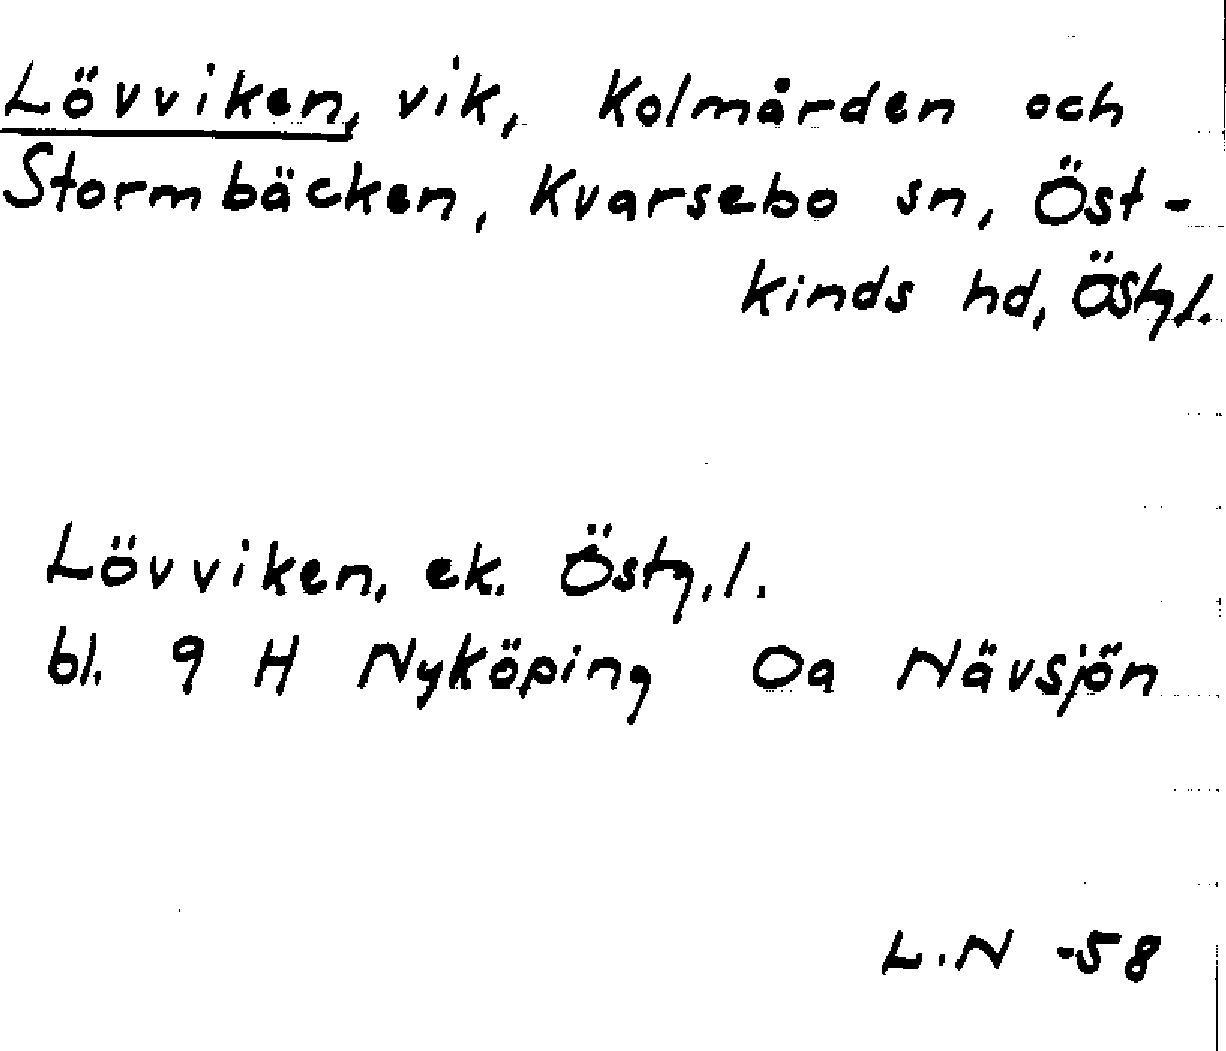 Lövviken, vik, Kolmården och
Stormbäcken, Kvarsebo sn, Öst-
kinds hd, Östgl.
Lövviken, ek. Östg.l.
bl. 9 H Nyköping 0a Nävsjön
L.N -58